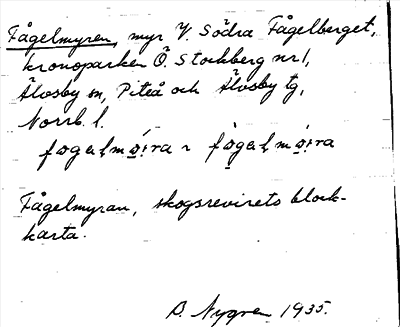 Fågelmyren, myr V. Södra Fågelberget,
kronoparken Ö. Stockberg nr 1,
Älvsby sn, Piteå och Älvsby tg,
Norrb. l.
Fågelmyran, skogsrevirets block-
karta.
B. Nygren 1935.